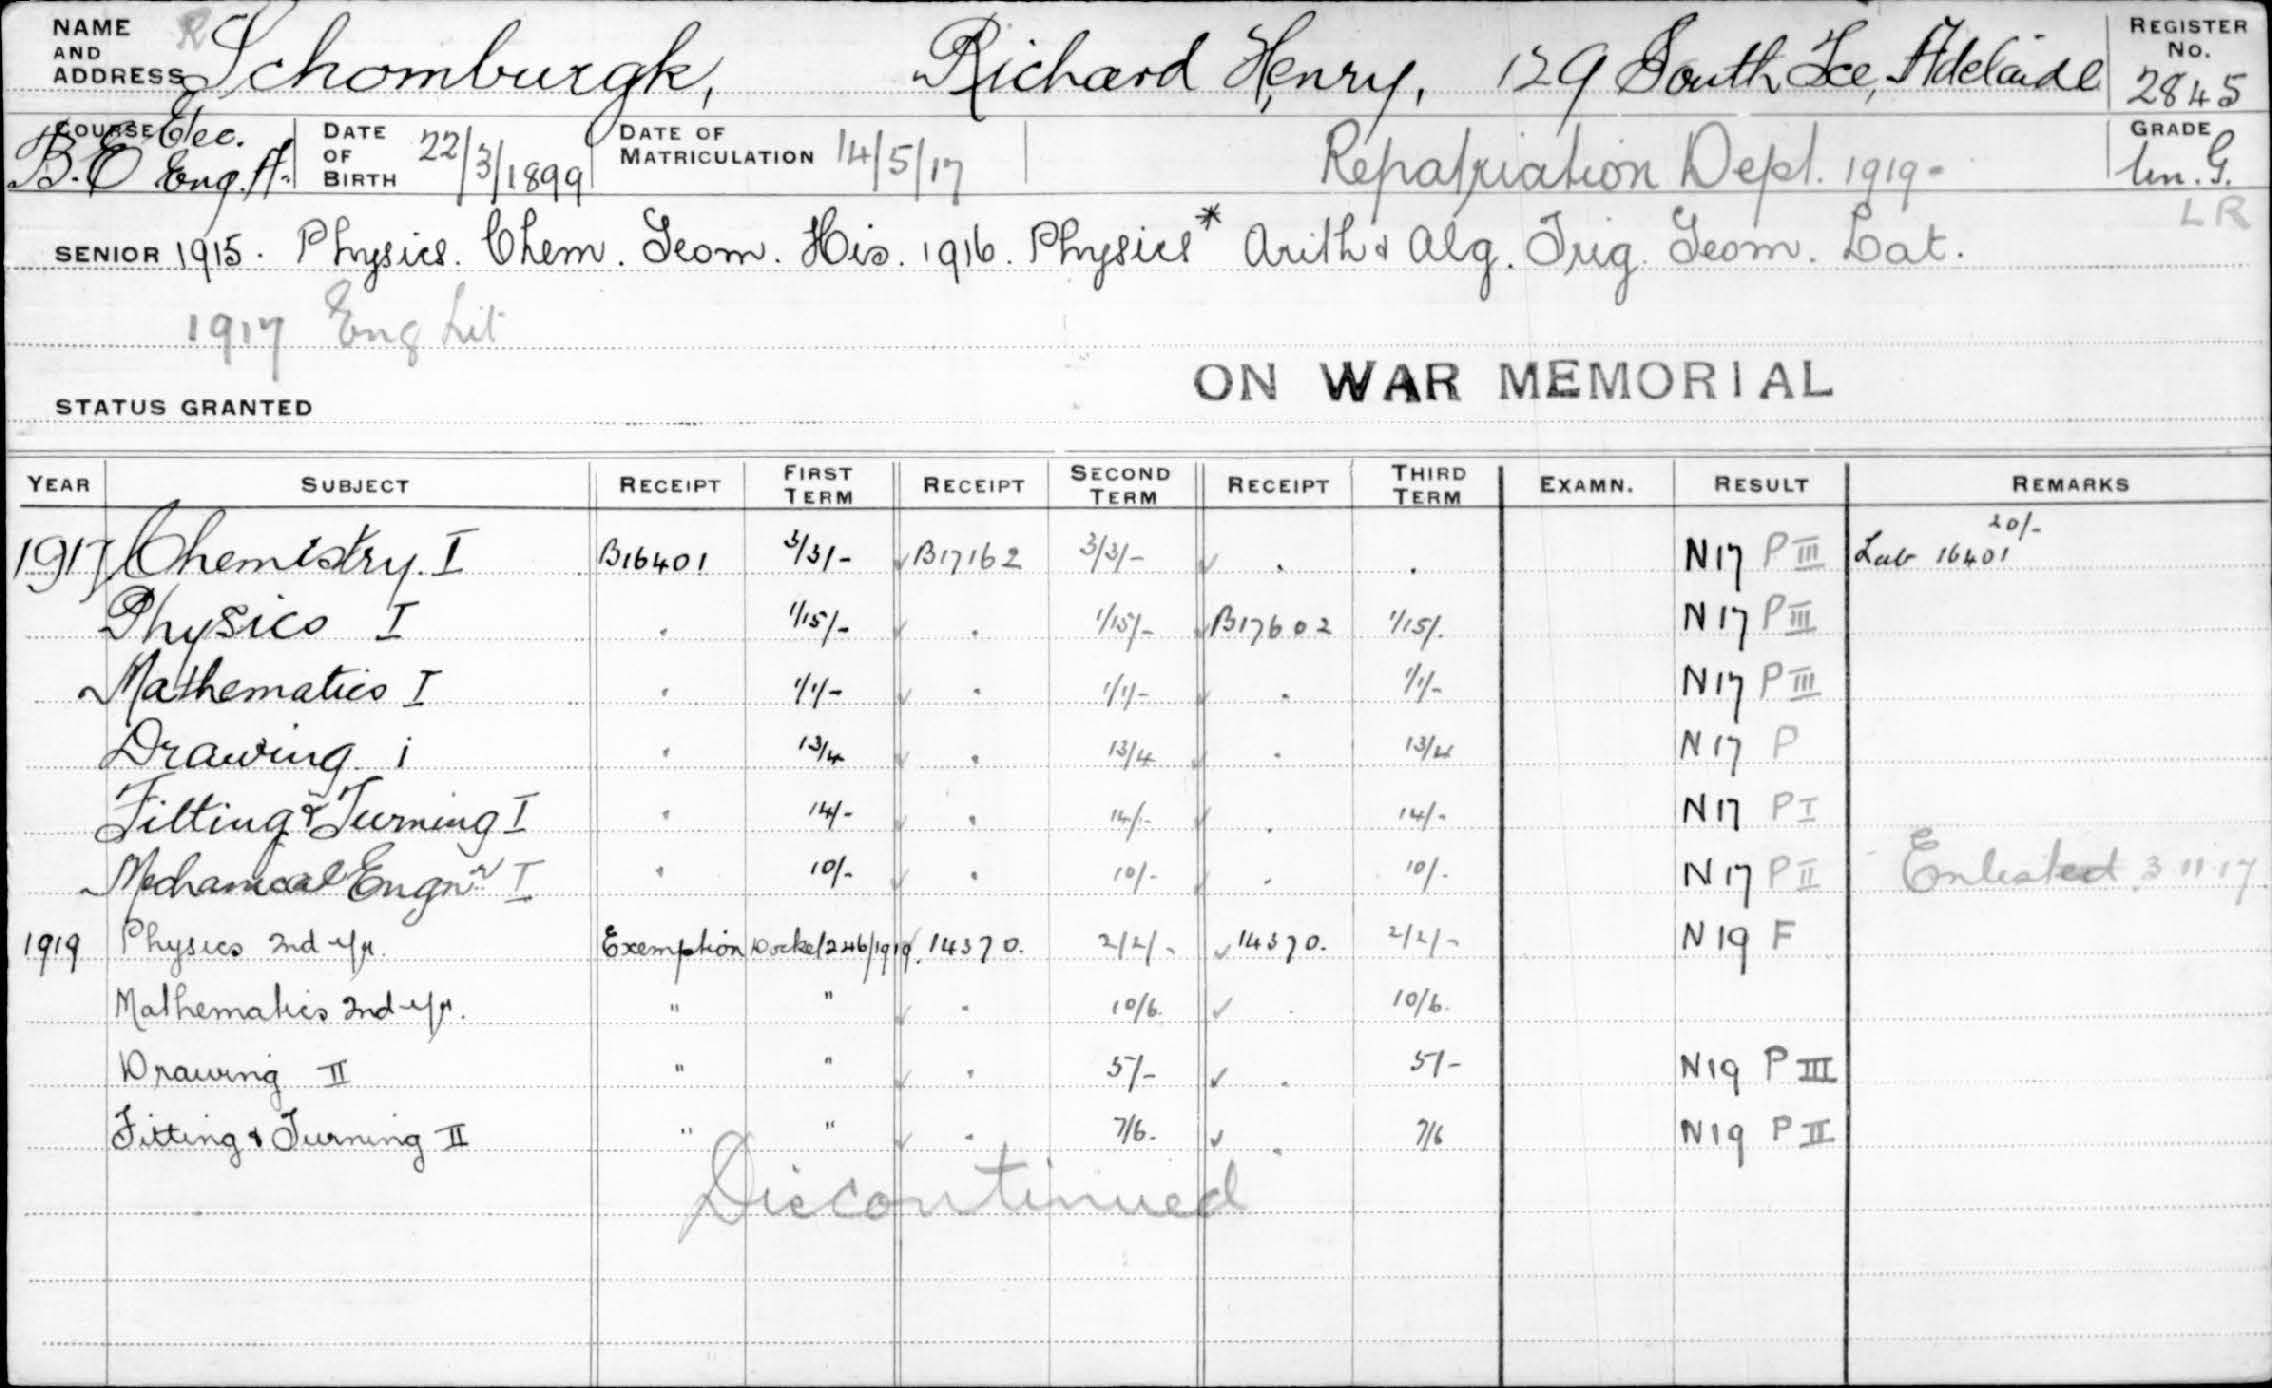 NAME AND ADDRESS R Schomburgk, Richard Henry, 129 South Tce, Adelaide REGISTER No. 2845
COURSE B.E. Elec. Eng. A. DATE OF BIRTH 22/3/1899 DATE OF MATRICULATION 14/5/17 Repatriation Dept. 1919- GRADE Un. G.
LR
SENIOR 1915. Physics. Chem. Geom. His. 1916. Physics* Arith & Alg. Trig. Geom. Lat.
1917 Eng Lit
ON WAR MEMORIAL
STATUS GRANTED
YEAR SUBJECT RECEIPT FIRST TERM RECEIPT SECOND TERM RECEIPT THIRD TERM EXAMN. RESULT REMARKS
1917 Chemistry. I B16401 3/3/- ✓ B17162 3/3/- ✓ . . N17 P III Lab 16401 20/-
Physics I . 1/15/- ✓ . 1/15/- ✓ B17602 1/15/. N17 P III
Mathematics I . 1/1/- ✓ . 1/1/- ✓ . 1/1/- N17 P III
Drawing i . 13/4 ✓ . 13/4 ✓ . 13/4 N17 P
Fitting & Turning I . 14/- ✓ . 14/- ✓ . 14/- N17 P I
Mechanical Engnr I . 10/- ✓ . 10/- ✓ . 10/. N17 P II Enlisted 3.11.17.
1919 Physics 2nd yr. Exemption Docket 246/1919 ✓ 14370. 2/2/- ✓ 14370. 2/2/- N19 F
Mathematics 2nd yr. " " ✓ . 10/6. ✓ . 10/6.
Drawing II " " ✓ . 5/- ✓ . 5/- N19 P III
Fitting & Turning II " " ✓ . 7/6. ✓ . 7/6 N19 P II
Discontinued